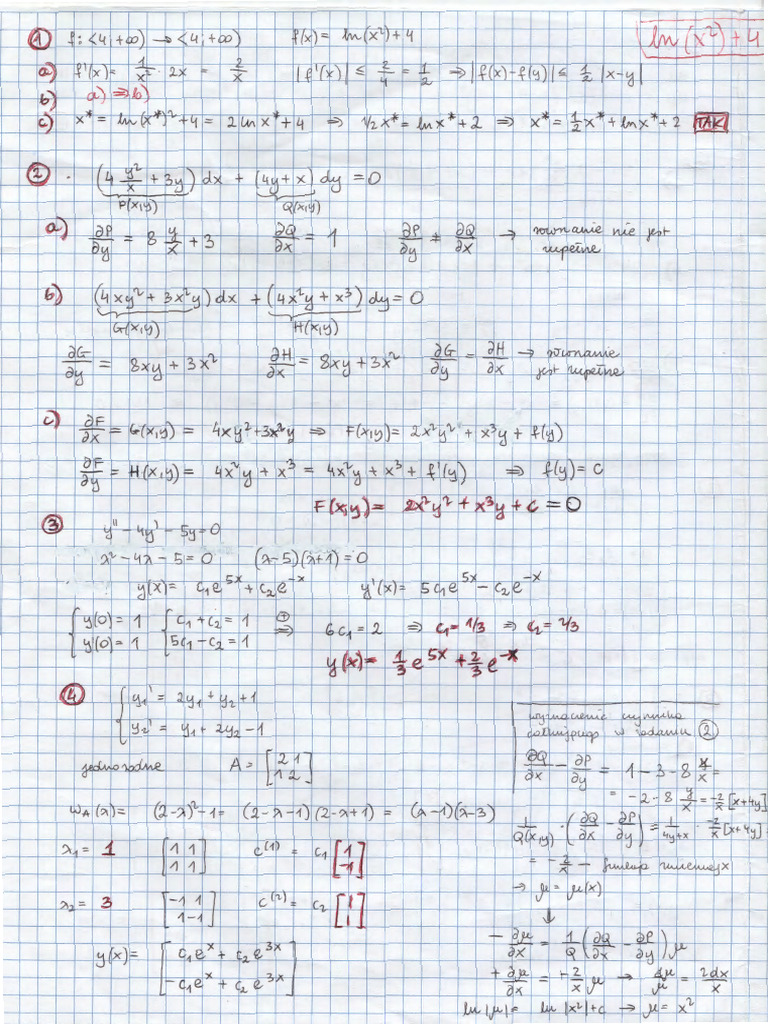 ① f: <4; +∞) → <4; +∞)   f(x) = ln(x²)+4   ln(x²)+4
a) f'(x) = 1/x² · 2x = 2/x   |f'(x)| ≤ 2/4 = 1/2 ⇒ |f(x)-f(y)| ≤ 1/2 |x-y|
b) a) ⇒ b)
c) x* = ln(x*)²+4 = 2 ln x* + 4 ⇒ 1/2 x* = ln x* + 2 ⇒ x* = 1/2 x* + ln x* + 2   TAK
② · (4 y²/x + 3y) dx + (4y + x) dy = 0
P(x,y)   Q(x,y)
a) ∂P/∂y = 8 y/x + 3   ∂Q/∂x = 1   ∂P/∂y ≠ ∂Q/∂x → równanie nie jest
zupełne
b) (4xy² + 3x²y) dx + (4x²y + x³) dy = 0
G(x,y)   H(x,y)
∂G/∂y = 8xy + 3x²   ∂H/∂x = 8xy + 3x²   ∂G/∂y = ∂H/∂x → równanie
jest zupełne
c) ∂F/∂x = G(x,y) = 4xy² + 3x²y ⇒ F(x,y) = 2x²y² + x³y + f(y)
∂F/∂y = H(x,y) = 4x²y + x³ = 4x²y + x³ + f'(y) ⇒ f(y) = c
F(x,y) = 2x²y² + x³y + c = 0
③ y'' - 4y' - 5y = 0
λ² - 4λ - 5 = 0   (λ-5)(λ+1) = 0
y(x) = c₁e^5x + c₂e^-x   y'(x) = 5c₁e^5x - c₂e^-x
{ y(0) = 1   { c₁ + c₂ = 1   ⊕
y(0) = 1   5c₁ - c₂ = 1   ⇒   6c₁ = 2 ⇒ c₁ = 1/3 ⇒ c₂ = 2/3
y(x) = 1/3 e^5x + 2/3 e^-x
④ { y₁' = 2y₁ + y₂ + 1
y₂' = y₁ + 2y₂ - 1
jednorodne   A = [2 1
1 2]
w_A(λ) = (2-λ)² - 1 = (2-λ-1)(2-λ+1) = (λ-1)(λ-3)
λ₁ = 1   [1 1   c⁽¹⁾ = c₁ [1
1 1]   -1]
λ₂ = 3   [-1 1   c⁽²⁾ = c₂ [1
1 -1]   1]
y(x) = [c₁e^x + c₂e^3x
-c₁e^x + c₂e^3x]
wyznaczenie czynnika
całkującego w zadaniu ②
∂Q/∂x - ∂P/∂y = 1 - 3 - 8 y/x =
= -2 - 8 y/x = -2/x [x+4y]
1/Q(x,y) · (∂Q/∂x - ∂P/∂y) = 1/(4y+x) · -2/x [x+4y]
= -2/x — funkcja zmiennej x
→ μ = μ(x)
↓
- ∂μ/∂x = 1/Q (∂Q/∂x - ∂P/∂y) μ
+ ∂μ/∂x = + 2/x μ → dμ/μ = 2dx/x
ln|μ| = ln|x²| + c → μ = x²